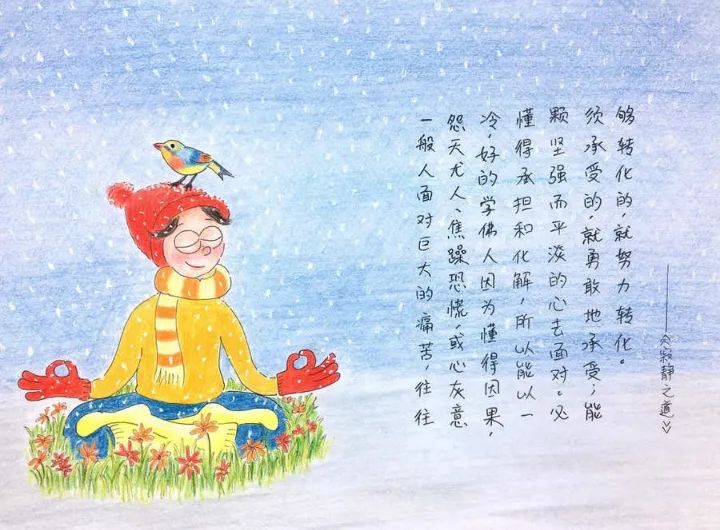 一般人面对巨大的痛苦，往往
怨天尤人、焦躁恐慌，或心灰意
冷，好的学佛人因为懂得因果，
懂得承担和化解，所以能以一
颗坚强而平淡的心去面对。必
须承受的，就勇敢地承受；能
够转化的，就努力转化。
——《寂静之道》